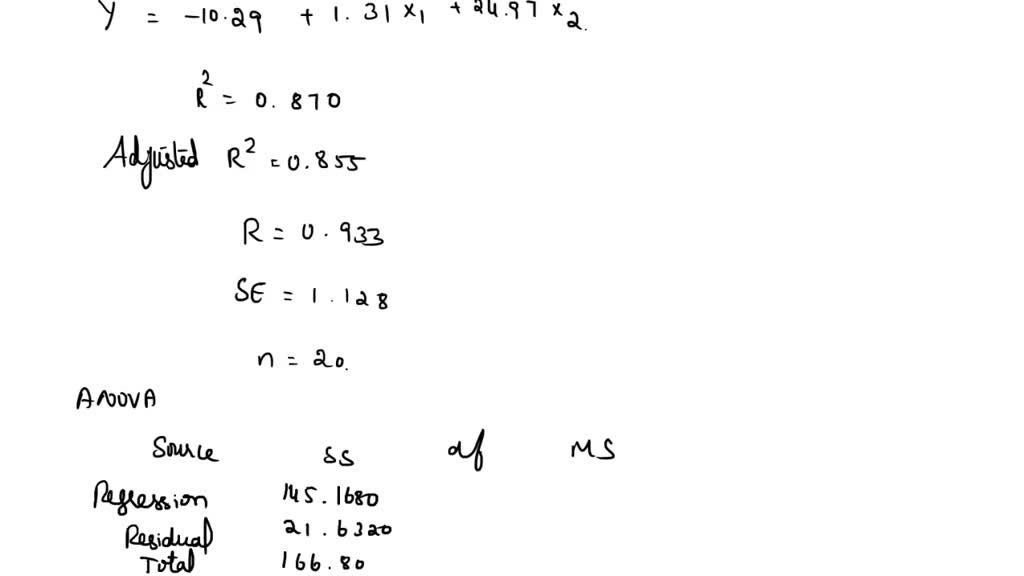 Y = -10.29 + 1.31 x₁ + 24.97 x₂.
R² = 0.870
Adjusted R² = 0.855
R = 0.933
SE = 1.128
n = 20.
ANOVA
Source SS df MS
Regression 145.1680
Residual 21.6320
Total 166.80